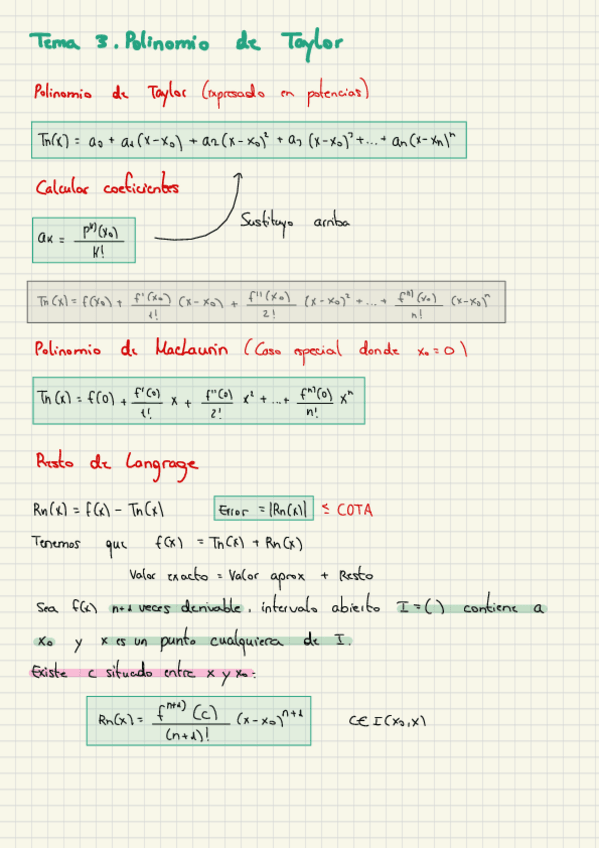 Tema 3. Polinomio de Taylor
Polinomio de Taylor (expresado en potencias)
Tn(x) = a₀ + a₁(x-x₀) + a₂(x-x₀)² + a₃(x-x₀)³ + ... + an(x-xn)ⁿ
Calcular coeficientes
Sustituyo arriba
aₖ = P^(k)(x₀) / k!
Tn(x) = f(x₀) + f'(x₀)/1! (x-x₀) + f''(x₀)/2! (x-x₀)² + ... + f^n)(x₀)/n! (x-x₀)ⁿ
Polinomio de MacLaurin (Caso especial donde x₀ = 0)
Tn(x) = f(0) + f'(0)/1! x + f''(0)/2! x² + ... + f^n)(0)/n! xⁿ
Resto de Langrage
Rn(x) = f(x) - Tn(x) Error = |Rn(x)| ≤ COTA
Tenemos que f(x) = Tn(x) + Rn(x)
Valor exacto = Valor aprox + Resto
Sea f(x) n+1 veces derivable, intervalo abierto I = ( ) contiene a
x₀ y x es un punto cualquiera de I.
Existe c situado entre x y x₀:
Rn(x) = f^n+1)(c) / (n+1)! (x-x₀)^n+1 C∈ I(x₀,x)